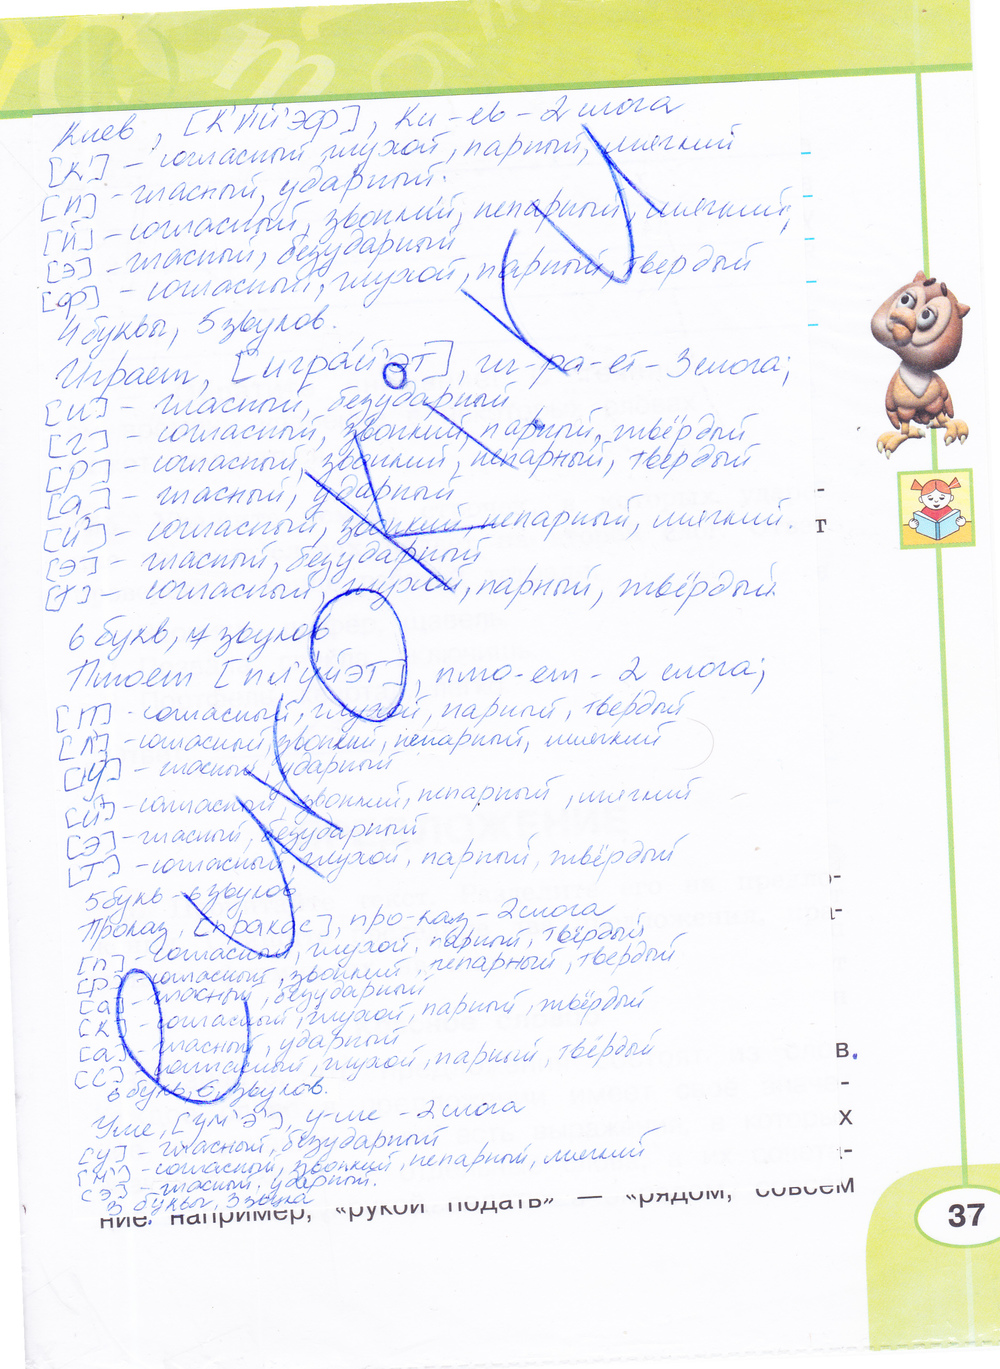 Киев, [к'ий'эф], Ки-ев - 2 слога
[к'] - согласный глухой, парный, мягкий
[и] - гласный, ударный.
[й'] - согласный, звонкий, непарный, мягкий;
[э] - гласный, безударный
[ф] - согласный, глухой, парный, твердый
4 буквы, 5 звуков.
Играет, [играй'эт], иг-ра-ет - 3 слога;
[и] - гласный, безударный
[г] - согласный, звонкий, парный, твёрдый
[р] - согласный, звонкий, непарный, твердый
[а] - гласный, ударный
[й'] - согласный, звонкий, непарный, мягкий.
т
[э] - гласный, безударный
[т] - согласный, глухой, парный, твёрдый.
6 букв, 7 звуков
Плюет [пл'уй'эт], плю-ет - 2 слога;
[п] - согласный, глухой, парный, твердый
[л'] - согласный, звонкий, непарный, мягкий
[у] - гласный, ударный
[й'] - согласный, звонкий, непарный, мягкий
[э] - гласный, безударный
[т] - согласный, глухой, парный, твёрдый
5 букв - 6 звуков
Проказ, [пракас], про-каз - 2 слога
[п] - согласный, глухой, парный, твёрдый
[р] - согласный, звонкий, непарный, твердый
[а] - гласный, безударный
[к] - согласный, глухой, парный, твёрдый
[а] - гласный, ударный
[с] - согласный, глухой, парный, твёрдый
в.
6 букв, 6 звуков.
Уме, [ум'э], у-ме - 2 слога
х
[у] - гласный, безударный
[м'] - согласный, звонкий, непарный, мягкий
[э] - гласный, ударный.
3 буквы, 3 звука
ние, например, «рукой подать» — «рядом, совсем
37